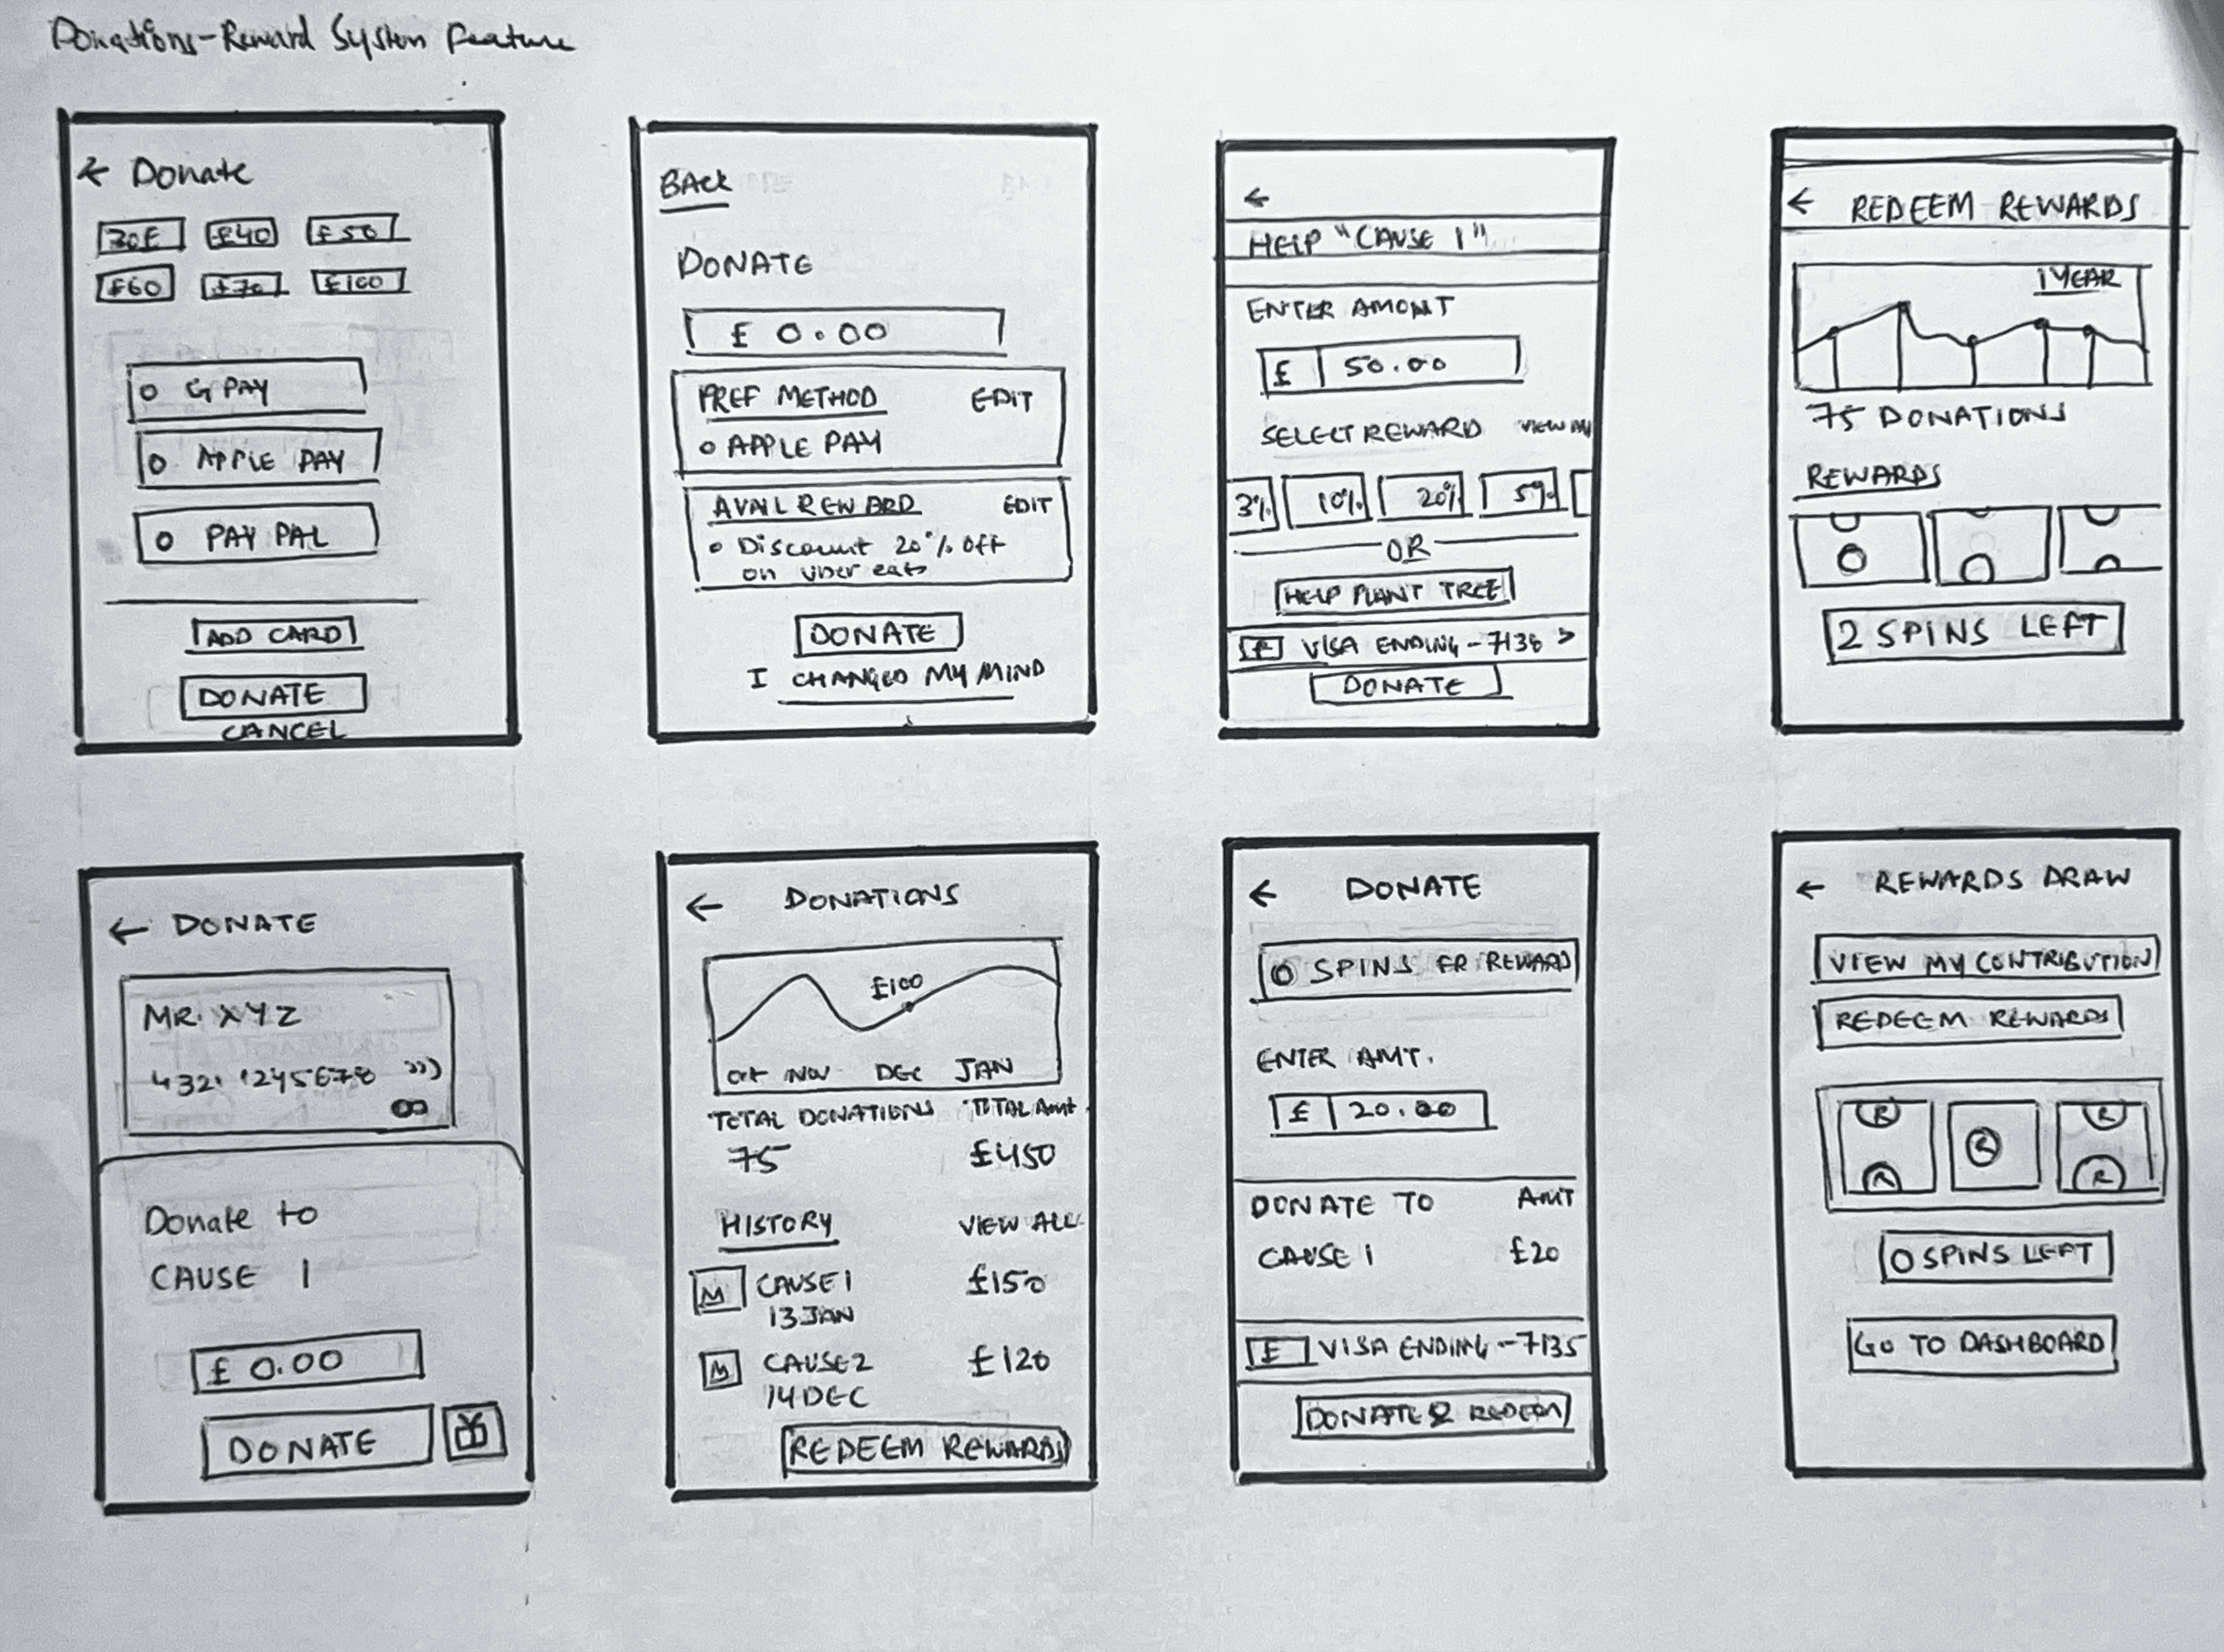 Donations-Reward System Feature
← Donate
30£ £40 £50
£60 £70 £100
G PAY
APPLE PAY
PAY PAL
ADD CARD
DONATE
CANCEL
BACK
DONATE
£ 0.00
PREF METHOD EDIT
APPLE PAY
AVAIL REWARD EDIT
Discount 20% off
on uber eats
DONATE
I CHANGED MY MIND
←
HELP "CAUSE 1"
ENTER AMONT
£ 50.00
SELECT REWARD VIEW
3% 10% 20% 5%
OR
HELP PLANT TREE
VISA ENDING - 7138 >
DONATE
← REDEEM REWARDS
1 YEAR
75 DONATIONS
REWARDS
2 SPINS LEFT
← DONATE
MR. XYZ
Donate to
CAUSE 1
£ 0.00
DONATE
← DONATIONS
£100
Oct NOV DEC JAN
TOTAL DONATIONS TOTAL Amt
75 £450
HISTORY VIEW ALL
CAUSE 1 £150
13 JAN
CAUSE 2 £120
14 DEC
REDEEM REWARDS
← DONATE
0 SPINS FR REWARD
ENTER AMT.
£ 20.00
DONATE TO AMT
CAUSE 1 £20
£ VISA ENDING -- 7135
DONATE & REDEEM
← REWARDS DRAW
VIEW MY CONTRIBUTION
REDEEM REWARDS
R R
R
R R
0 SPINS LEFT
GO TO DASHBOARD